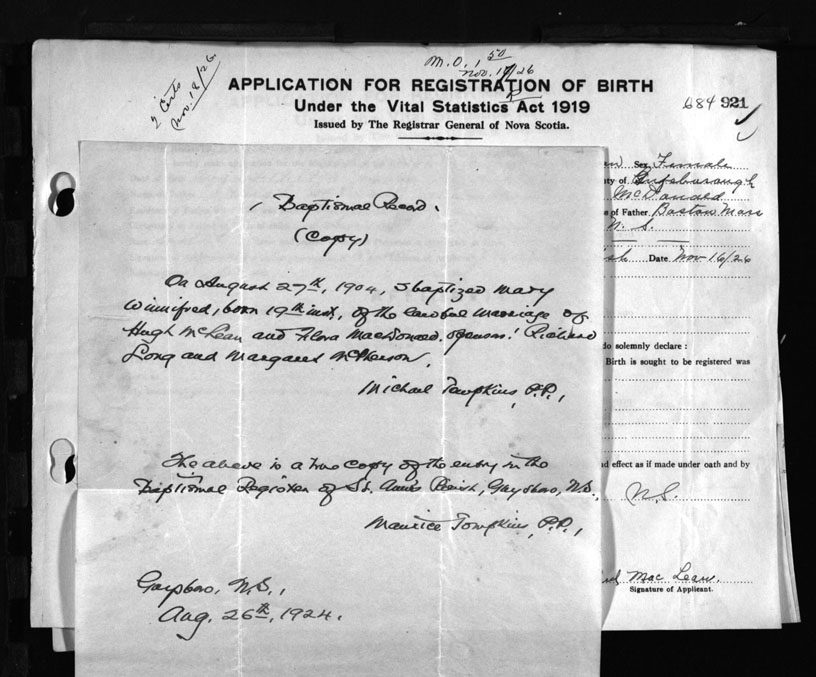 M.O. 1 50
Nov. 17/26
2 Certs
Nov. 18/26.
APPLICATION FOR REGISTRATION OF BIRTH
Under the Vital Statistics Act 1919
Issued by The Registrar General of Nova Scotia.
684 921
Sex Female
ty of Guysborough
McDonald
s of Father Boston Mass
N. S.
Date Nov 16/26
( Baptismal Record.
(Copy)
On August 27th, 1904, I baptized Mary
Winnifred, born 19th inst, of the lawful marriage of
Hugh McLean and Flora MacDonald. Sponsors: Richard
Long and Margaret McPherson.
Michael Tompkins, P.P.,
do solemnly declare :
Birth is sought to be registered was
The above is a true copy of the entry in the
Baptismal Register of St. Ann's Parish, Guysboro, N.S.,
Maurice Tompkins, P.P.,
d effect as if made under oath and by
N.S.
Guysboro, N.S.,
Aug. 26th, 1924.
Mac Lean
Signature of Applicant.